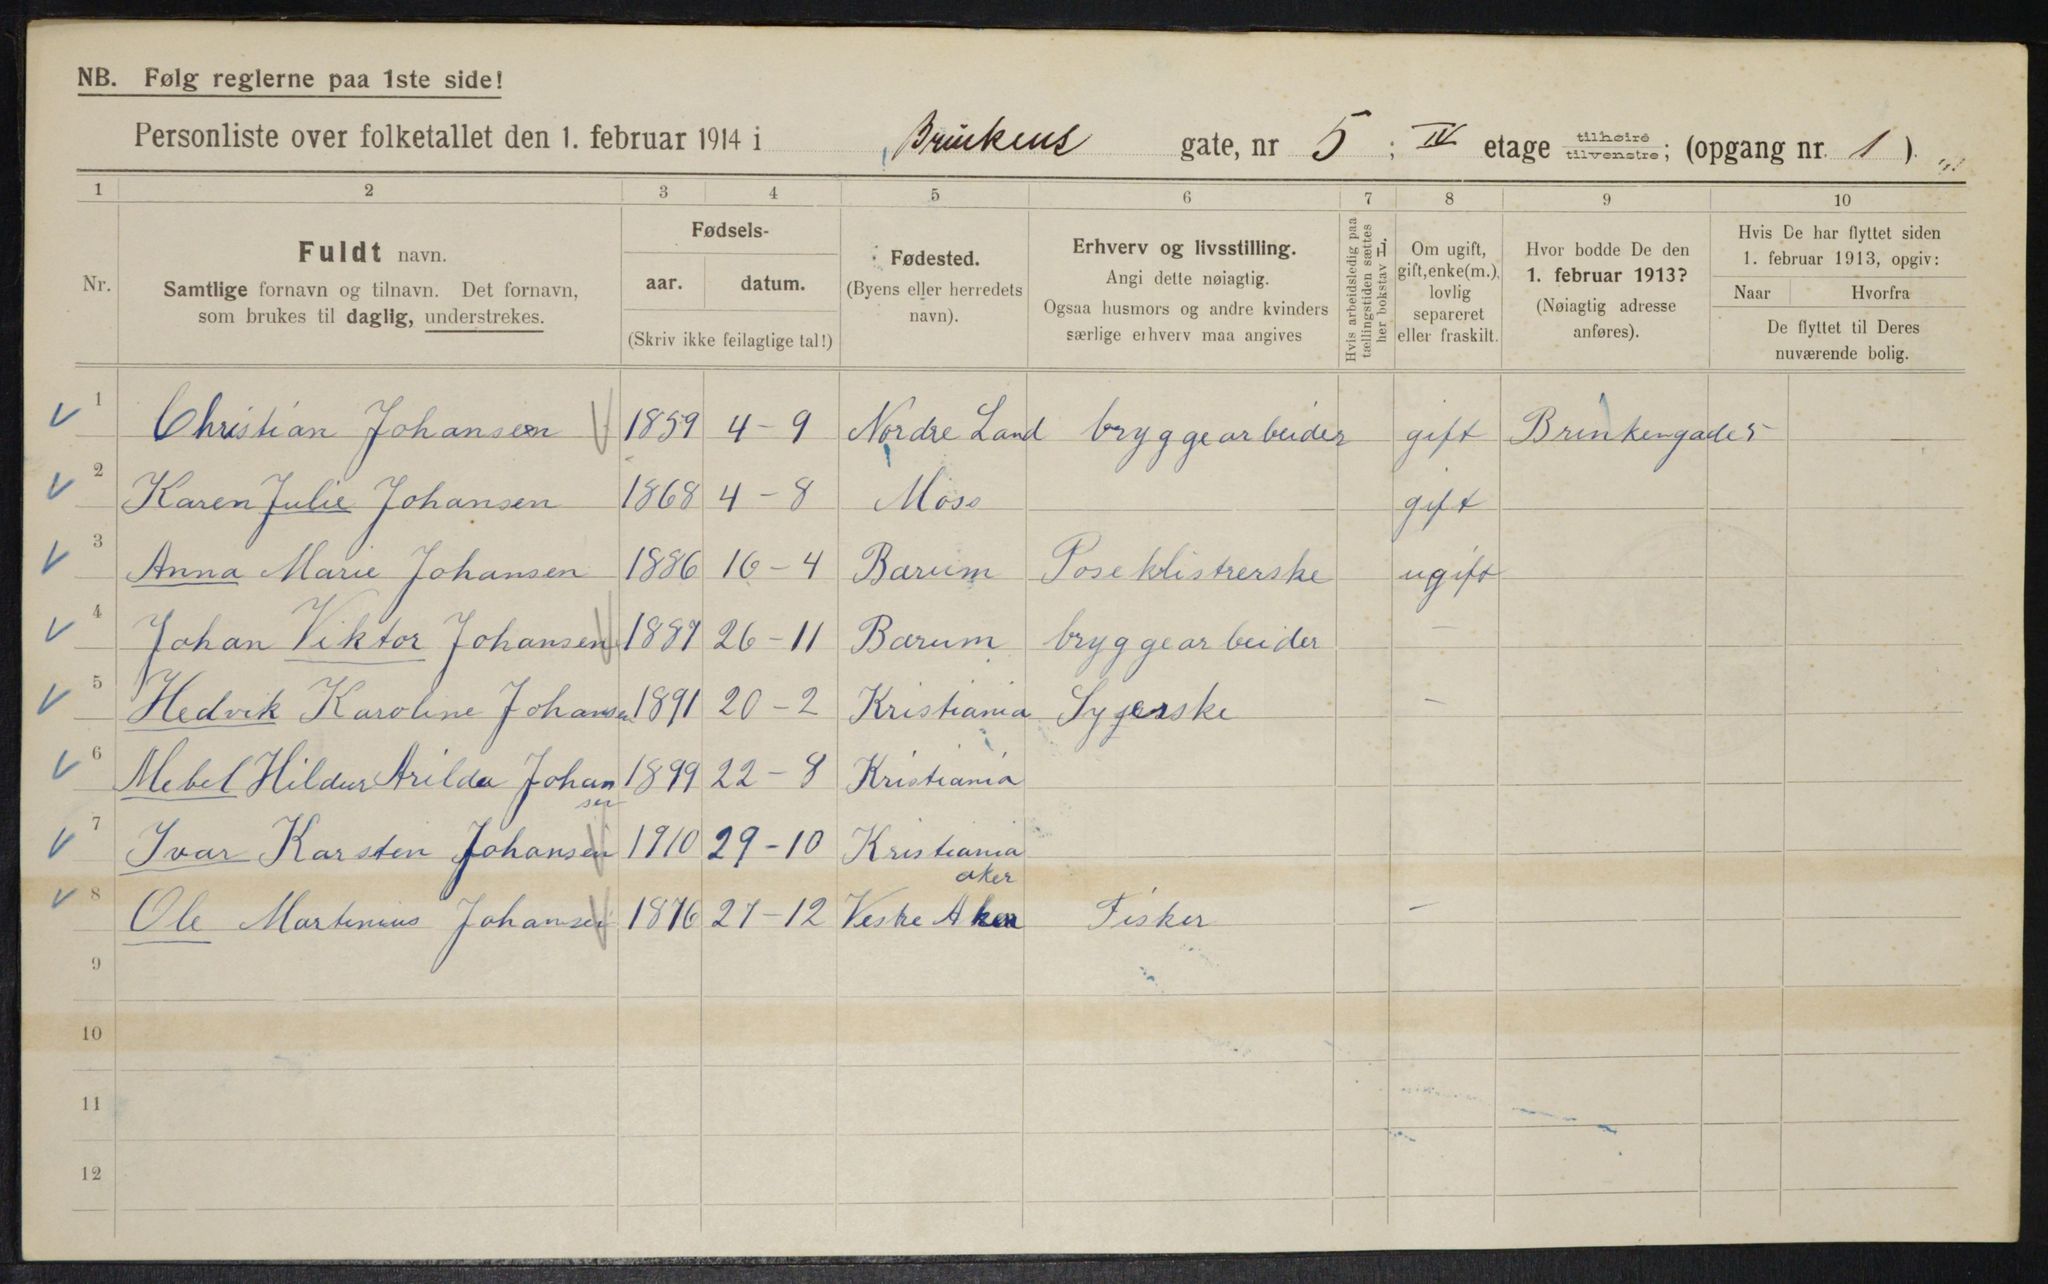 NB. Følg reglerne paa 1ste side!
Personliste over folketallet den 1. februar 1914 i Brinkens gate, nr 5 ; IV etage tilhøire tilvenstre; (opgang nr. 1 ).
1 2 3 4 5 6 7 8 9 10
Nr.
Fuldt navn.
Samtlige fornavn og tilnavn. Det fornavn,
som brukes til daglig, understrekes.
Fødsels-
aar. datum.
(Skriv ikke feilagtige tal!)
Fødested.
(Byens eller herredets
navn).
Erhverv og livsstilling.
Angi dette nøiagtig.
Ogsaa husmors og andre kvinders
særlige erhverv maa angives
Hvis arbeidsledig paa
tællingstiden sættes
her bokstav L
Om ugift,
gift, enke(m.),
lovlig
separeret
eller fraskilt.
Hvor bodde De den
1. februar 1913?
(Nøiagtig adresse
anføres).
Hvis De har flyttet siden
1. februar 1913, opgiv:
Naar Hvorfra
De flyttet til Deres
nuværende bolig.
1 Christian Johansen 1859 4-9 Nordre Land bryggearbeider gift Brinkengade 5
2 Karen Julie Johansen 1868 4-8 Moss gift
3 Anna Marie Johansen 1886 16-4 Barum Poseklistrerske ugift
4 Johan Viktor Johansen 1887 26-11 Barum bryggearbeider -
5 Hedvik Karoline Johansen 1891 20-2 Kristiania Syerske -
6 Mebel Hildur Arilda Johan 1899 22-8 Kristiania
sen
7 Ivar Karsten Johansen 1910 29-10 Kristiania
aker
8 Ole Martinius Johansen 1876 27-12 Vestre Aker Fisker -
9
10
11
12